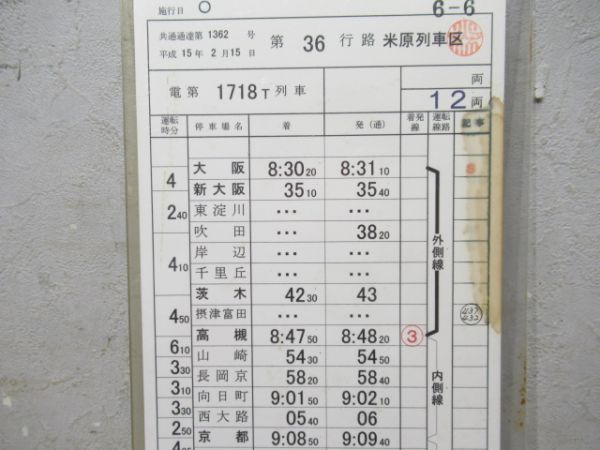 施行日 ○ 6-6
共通通達第 1362 号
平成 15年 2月 15日
第 36 行路 米原列車区
電第 1718T列車 両
12両
運転時分 停車場名 着 発(通) 着発線 運転線路 記事
大阪 8:30 20 8:31 10
4
新大阪 35 10 35 40
2 40 東淀川 ... ...
吹田 ... 38 20
岸辺 ... ...
4 10
千里丘 ... ...
茨木 42 30 43
摂津富田 ... ...
4 50
高槻 8:47 50 8:48 20 ③
外側線
6 10 山崎 54 30 54 50
3 30 長岡京 58 20 58 40
3 10 向日町 9:01 50 9:02 10
3 30 西大路 05 40 06
2 50 京都 9:08 50 9:09 40
内側線